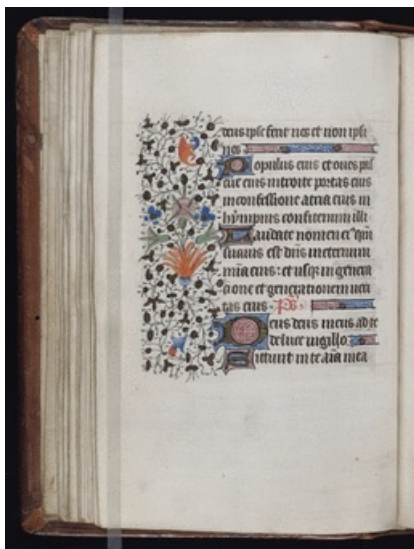 deus ipse fecit nos et non ipsi
nos
Populus eius et oues pas
cue eius introite portas eius
in confessione atria eius in
hympnis confitemini illi
Laudate nomen eius qm̄
suauis est dn̄s in eternum
mīa eius: et usqȝ in genera
cione et generationem ueri
tas eius. Ps
Deus deus meus ad te
de luce uigilo
Sitiuit in te aīa mea